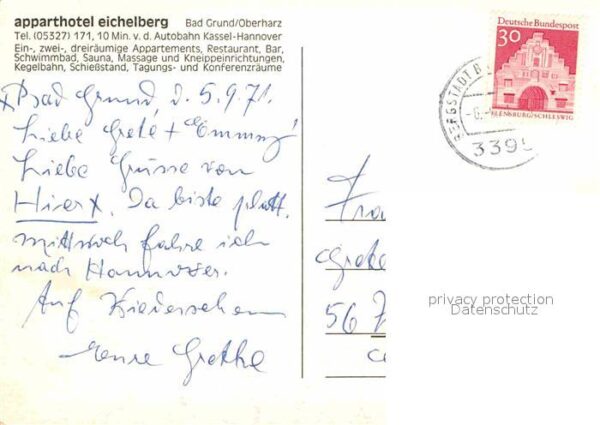 apparthotel eichelberg Bad Grund/Oberharz
Tel. (05327) 171, 10 Min. v. d. Autobahn Kassel-Hannover
Ein-, zwei-, dreiräumige Appartements, Restaurant, Bar,
Schwimmbad, Sauna, Massage und Kneippeinrichtungen,
Kegelbahn, Schießstand, Tagungs- und Konferenzräume
x Bad Grund d. 5.9.71.
Liebe Grete + Emmy
Liebe Grüsse von
Hier x. Da biste platt.
mittwoch fahre ich
nach Hannover.
Auf Wiedersehen
Eure Grethe
30
Deutsche Bundespost
FLENSBURG/SCHLESWIG
BERGSTADT B
-6.
3395
Fra
Grete
56
privacy protection
Datenschutz